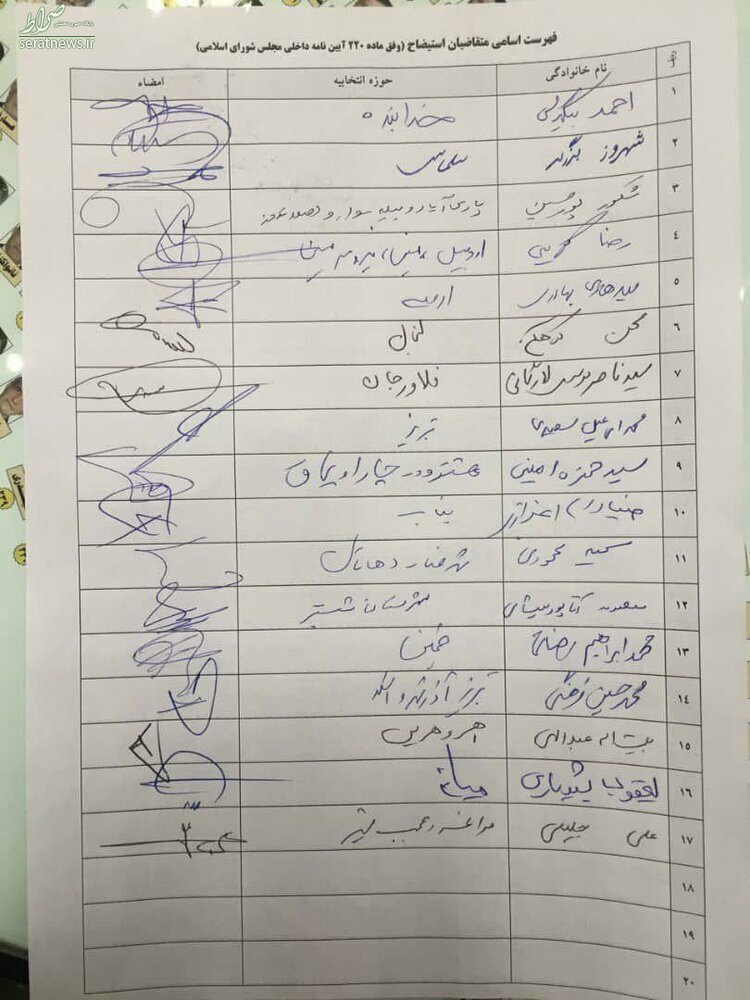 صراط
پایگاه خبری تحلیلی
seratnews.ir
فهرست اسامی متقاضیان استیضاح (وفق ماده ۲۲۰ آیین نامه داخلی مجلس شورای اسلامی)
ردیف نام خانوادگی حوزه انتخابیه امضاء
۱ احمد بیگدلی خدابنده
۲ شهروز برزگر سلماس
۳ شکور پورحسین پارس آباد و بیله سوار و
۴ رضا کریمی اردبیل، نمین، نیر و سرعین
۵ سید هادی بهادری ارومیه
۶ محسن
۷ سید ناصر موسوی لارگانی فلاورجان
۸ محمد اسماعیل سعیدی تبریز
۹ سید حمزه امینی هشترود و چاراویماق
۱۰ ضیاءاله اعزازی بناب
۱۱ سمیه محمودی شهرضا و دهاقان
۱۲ معصومه آقاپور علیشاهی شهرستان شبستر
۱۳ محمد ابراهیم رضائی خمین
۱۴ محمد حسین فرهنگی تبریز آذرشهر و اسکو
۱۵ عبدالهی اهر و هریس
۱۶ یعقوب شیویاری میانه
۱۷ علی جلیلی مراغه و عجب شیر
۱۸
۱۹
۲۰